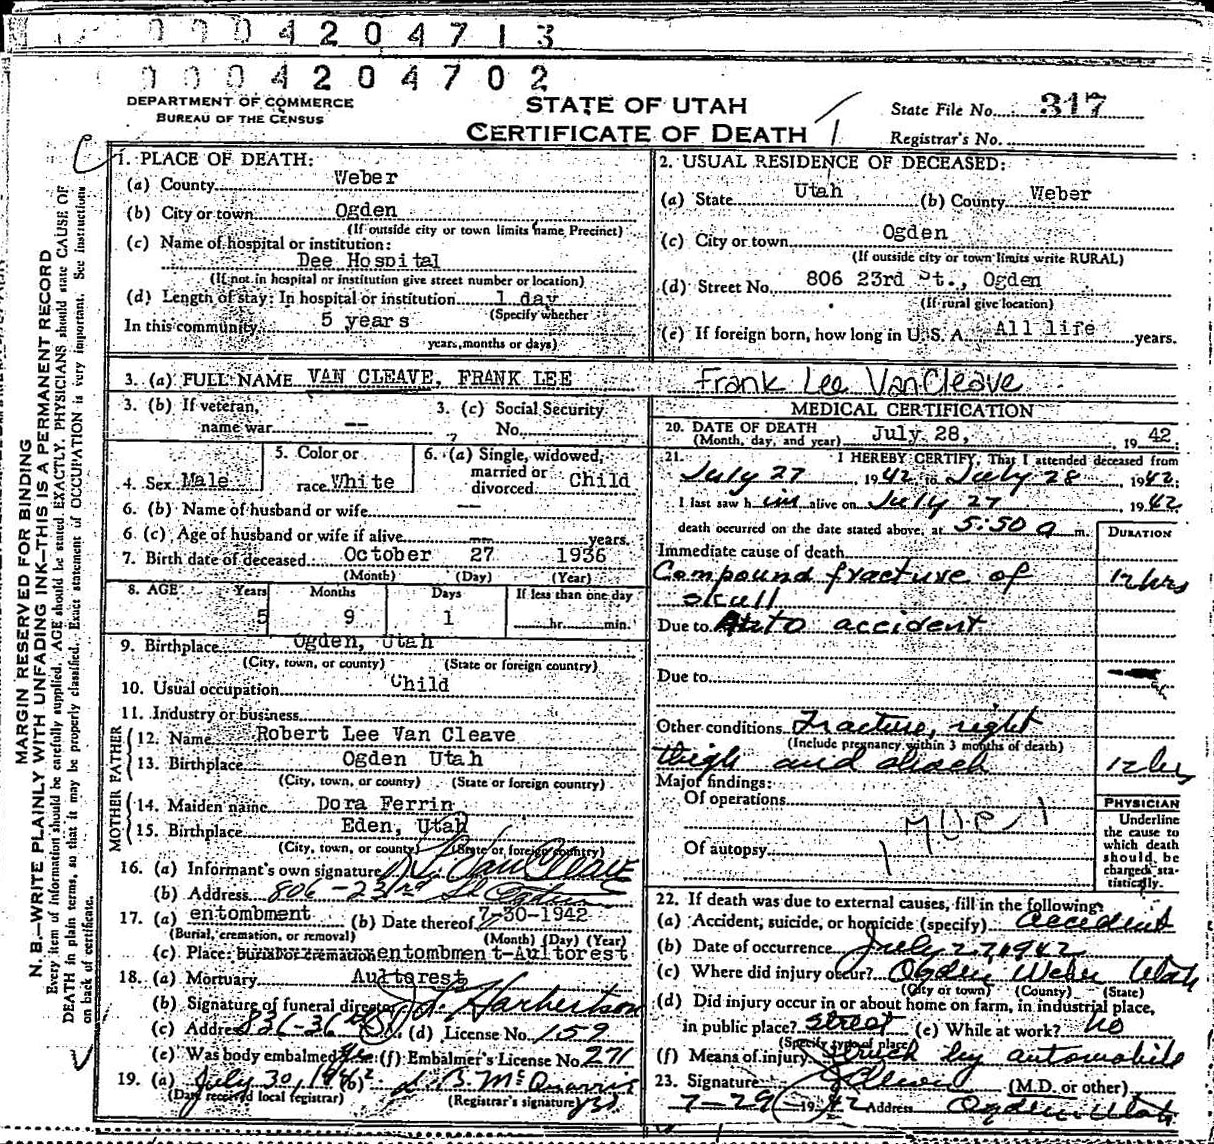 0004204713
0004204702
DEPARTMENT OF COMMERCE
BUREAU OF THE CENSUS
STATE OF UTAH
CERTIFICATE OF DEATH
State File No. 317
Registrar's No.
MARGIN RESERVED FOR BINDING
N. B.—WRITE PLAINLY WITH UNFADING INK—THIS IS A PERMANENT RECORD
Every item of information should be carefully supplied. AGE should be stated EXACTLY. PHYSICIANS should state CAUSE OF
DEATH in plain terms, so that it may be properly classified. Exact statement of OCCUPATION is very important. See instructions
on back of certificate.
1. PLACE OF DEATH:
(a) County Weber
(b) City or town Ogden
(If outside city or town limits name Precinct)
(c) Name of hospital or institution:
Dee Hospital
(If not in hospital or institution give street number or location)
(d) Length of stay: In hospital or institution 1 day
(Specify whether
In this community 5 years
years, months or days)
2. USUAL RESIDENCE OF DECEASED:
(a) State Utah (b) County Weber
(c) City or town Ogden
(If outside city or town limits write RURAL)
(d) Street No. 806 23rd St., Ogden
(If rural give location)
(e) If foreign born, how long in U. S. A. All life years.
3. (a) FULL NAME VAN CLEAVE, FRANK LEE Frank Lee VanCleave
3. (b) If veteran, name war --
3. (c) Social Security No.
4. Sex Male
5. Color or race White
6. (a) Single, widowed, married or divorced Child
6. (b) Name of husband or wife --
6 (c) Age of husband or wife if alive -- years.
7. Birth date of deceased October 27 1936
(Month) (Day) (Year)
8. AGE Years 5 Months 9 Days 1 If less than one day hr. min.
9. Birthplace Ogden, Utah
(City, town, or county) (State or foreign country)
10. Usual occupation Child
11. Industry or business
FATHER
12. Name Robert Lee Van Cleave
13. Birthplace Ogden Utah
(City, town, or county) (State or foreign country)
MOTHER
14. Maiden name Dora Ferrin
15. Birthplace Eden, Utah
(City, town, or county) (State or foreign country)
16. (a) Informant's own signature Van Cleave
(b) Address 806-23rd St Ogden
17. (a) entombment (b) Date thereof 7-30-1942
(Burial, cremation, or removal) (Month) (Day) (Year)
(c) Place: burial or cremation entombment-Aultorest
18. (a) Mortuary Aultorest
(b) Signature of funeral director Harbertson
(c) Address 836-36 (d) License No. 159
(e) Was body embalmed (f) Embalmer's License No. 271
19. (a) July 30, 1942
(Date received local registrar) (Registrar's signature)
MEDICAL CERTIFICATION
20. DATE OF DEATH
(Month, day, and year) July 28, 1942
21. I HEREBY CERTIFY, That I attended deceased from
July 27 1942 to July 28, 1942;
I last saw him alive on July 27 1942
death occurred on the date stated above, at 5:50 a m.
DURATION
Immediate cause of death
Compound fracture of 12 hrs
skull
Due to Auto accident
Due to
Other conditions Fracture, right
(Include pregnancy within 3 months of death)
thigh and shock 12 hrs
Major findings:
Of operations
Of autopsy
PHYSICIAN
Underline
the cause to
which death
should be
charged statistically.
22. If death was due to external causes, fill in the following:
(a) Accident, suicide, or homicide (specify) accident
(b) Date of occurrence July 27 1942
(c) Where did injury occur? Ogden Weber Utah
(City or town) (County) (State)
(d) Did injury occur in or about home on farm, in industrial place,
in public place? Street (e) While at work? no
(Specify type of place)
(f) Means of injury Struck by automobile
23. Signature (M.D. or other)
7-29 1942 Address Ogden Utah